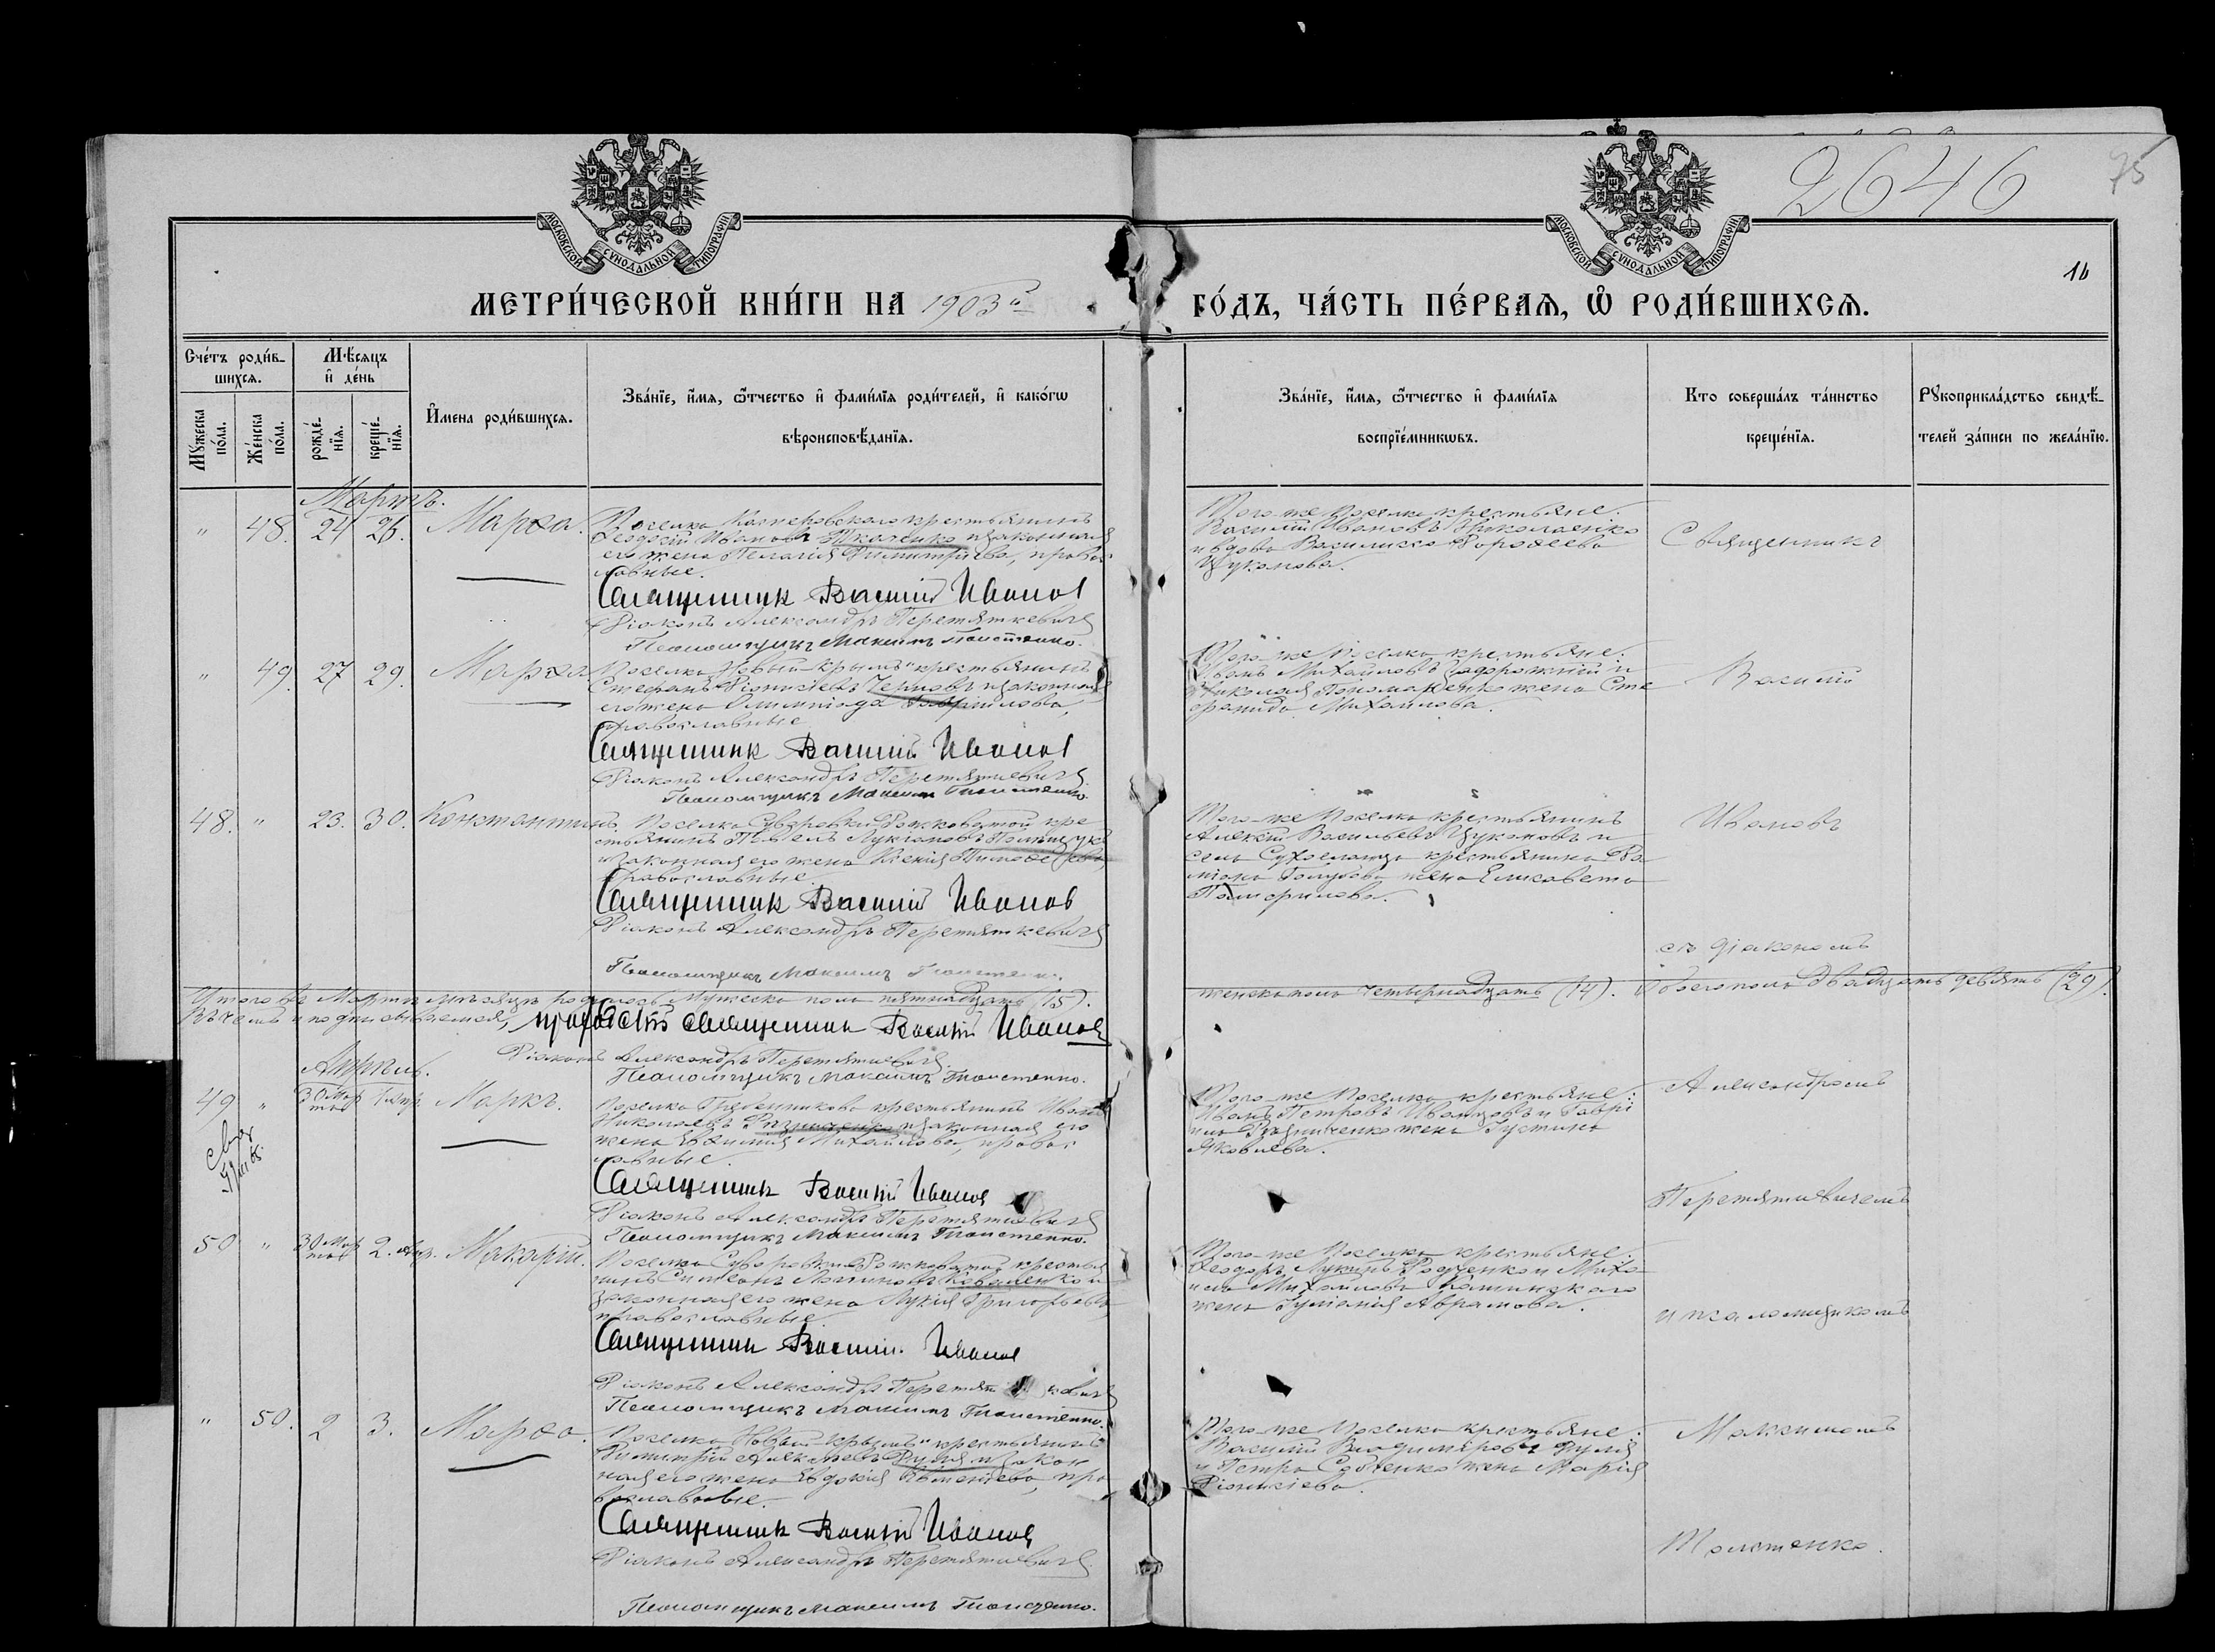 2646
75
МОСКОВСКОЙ СѴНОДАЛЬНОЙ ТИПОГРАФІИ
МОСКОВСКОЙ СѴНОДАЛЬНОЙ ТИПОГРАФІИ
16
МЕТРИ́ЧЕСКОЙ КНИ́ГИ НА 1903й
ГО́ДЪ, ЧА́СТЬ ПЕ́РВАѦ, Ѡ҆ РОДИ́ВШИХСѦ.
Сче́тъ роди́в-
шихсѧ.
Мꙋ́жеска по́ла.
Же́нска по́ла.
Мѣ́сѧцъ
и҆ де́нь
рожде́-нїѧ.
креще́-нїѧ.
И҆мена роди́вшихсѧ.
Зва́нїе, и҆́мѧ, ѻ҆́тчество и҆ фами́лїѧ роди́телей, и҆ како́гѡ
вѣроисповѣ́данїѧ.
Зва́нїе, и҆́мѧ, ѻ҆́тчество и҆ фами́лїѧ
воспрїе́мникѡвъ.
Кто соверша́лъ та́инство
креще́нїѧ.
Рꙋкоприкла́дство свидѣ́-
телей за́писи по жела́нїю.
Мартъ.
" 48. 24 26. Марѳа.
Поселка крестьянинъ
Ѳеодосій Ивановъ Ткаченко и законная
его жена Пелагія Димитріева, правос
лавные.
Священник Василий Иванов
Діаконъ Александръ Перетяткевичъ
Псаломщикъ Максимъ
Того-же поселка крестьяне:
Василій Ивановъ Николаенко
и вдова Василисса Дороѳеева
Цуканова.
Священникъ
" 49. 27 29. Марѳа.
Поселка "Новый-Крымъ" крестьянинъ
Стефанъ Діонисіевъ и законная
его жена Олимпіада Гавріилова,
православные
Священник Василий Иванов
Діаконъ Александръ Перетяткевичъ
Псаломщикъ Максим
Того-же поселка крестьяне:
Иванъ Михайловъ Задорожній и
Николая Пономаренко жена Сте
фанида Михайлова.
Василій
48. " 23. 30. Константинъ.
Поселка Суворовки-Рожковатой кре
стьянинъ Павелъ
и законная его жена Ксенія Тимоѳеева,
православные.
Священник Василий Иванов
Діаконъ Александръ Перетяткевичъ
Псаломщикъ Максимъ
Того-же поселка крестьянинъ
Алексій Васильевъ Цукановъ и
села крестьянина
жена Елисавета
Памфилова.
Ивановъ
съ діакономъ
Итого въ Мартѣ мѣсяцѣ родилось Мужеска пола пятнадцать (15).
женска пола четырнадцать (14). Обоего пола двадцать девять (29).
Въ чемъ и подписываемся, приход. священник Василий Иванов
Діаконъ Александръ Перетяткевичъ.
Псаломщикъ Максимъ
Апрѣль.
49 " 30 Мар та 1 Апр. Маркъ.
Поселка Гребенникова крестьянинъ Иванъ
Николаевъ и законная его
жена Евѳимія Михайлова, правос
лавные.
Священник Василий Иванов
Діаконъ Александръ Перетяткевичъ
Псаломщикъ Максимъ
Того-же поселка крестьяне:
Иванъ Петровъ Иванцовъ и Гаврі
ила жена Іустина
Яковлева.
Александромъ
Перетяткевичемъ
50 " 30 Мар та 2. Апр. Макарій.
Поселка Суворовки-Рожковатой крестья
нинъ Симеонъ Коваленко и
законная его жена Лукія Григорьева,
православные.
Священник Василий Иванов
Діаконъ Александръ Перетяткевичъ
Псаломщикъ Максимъ
Того-же поселка крестьяне:
Ѳеодоръ Лукинъ и Миха
ила Михайлова
жена Іуліанія Аврамова.
и псаломщикомъ
" 50. 2 3. Марѳа.
Поселка "Новый-Крымъ" крестьянинъ
Димитрій Алексѣевъ и закон
ная его жена Евдокія, пра
вославные.
Священник Василий Иванов
Діаконъ Александръ Перетяткевичъ
Псаломщикъ Максимъ
Того-же поселка крестьяне:
Василій Владиміровъ
и Петра жена Марія
Діонисіева.
Максимомъ